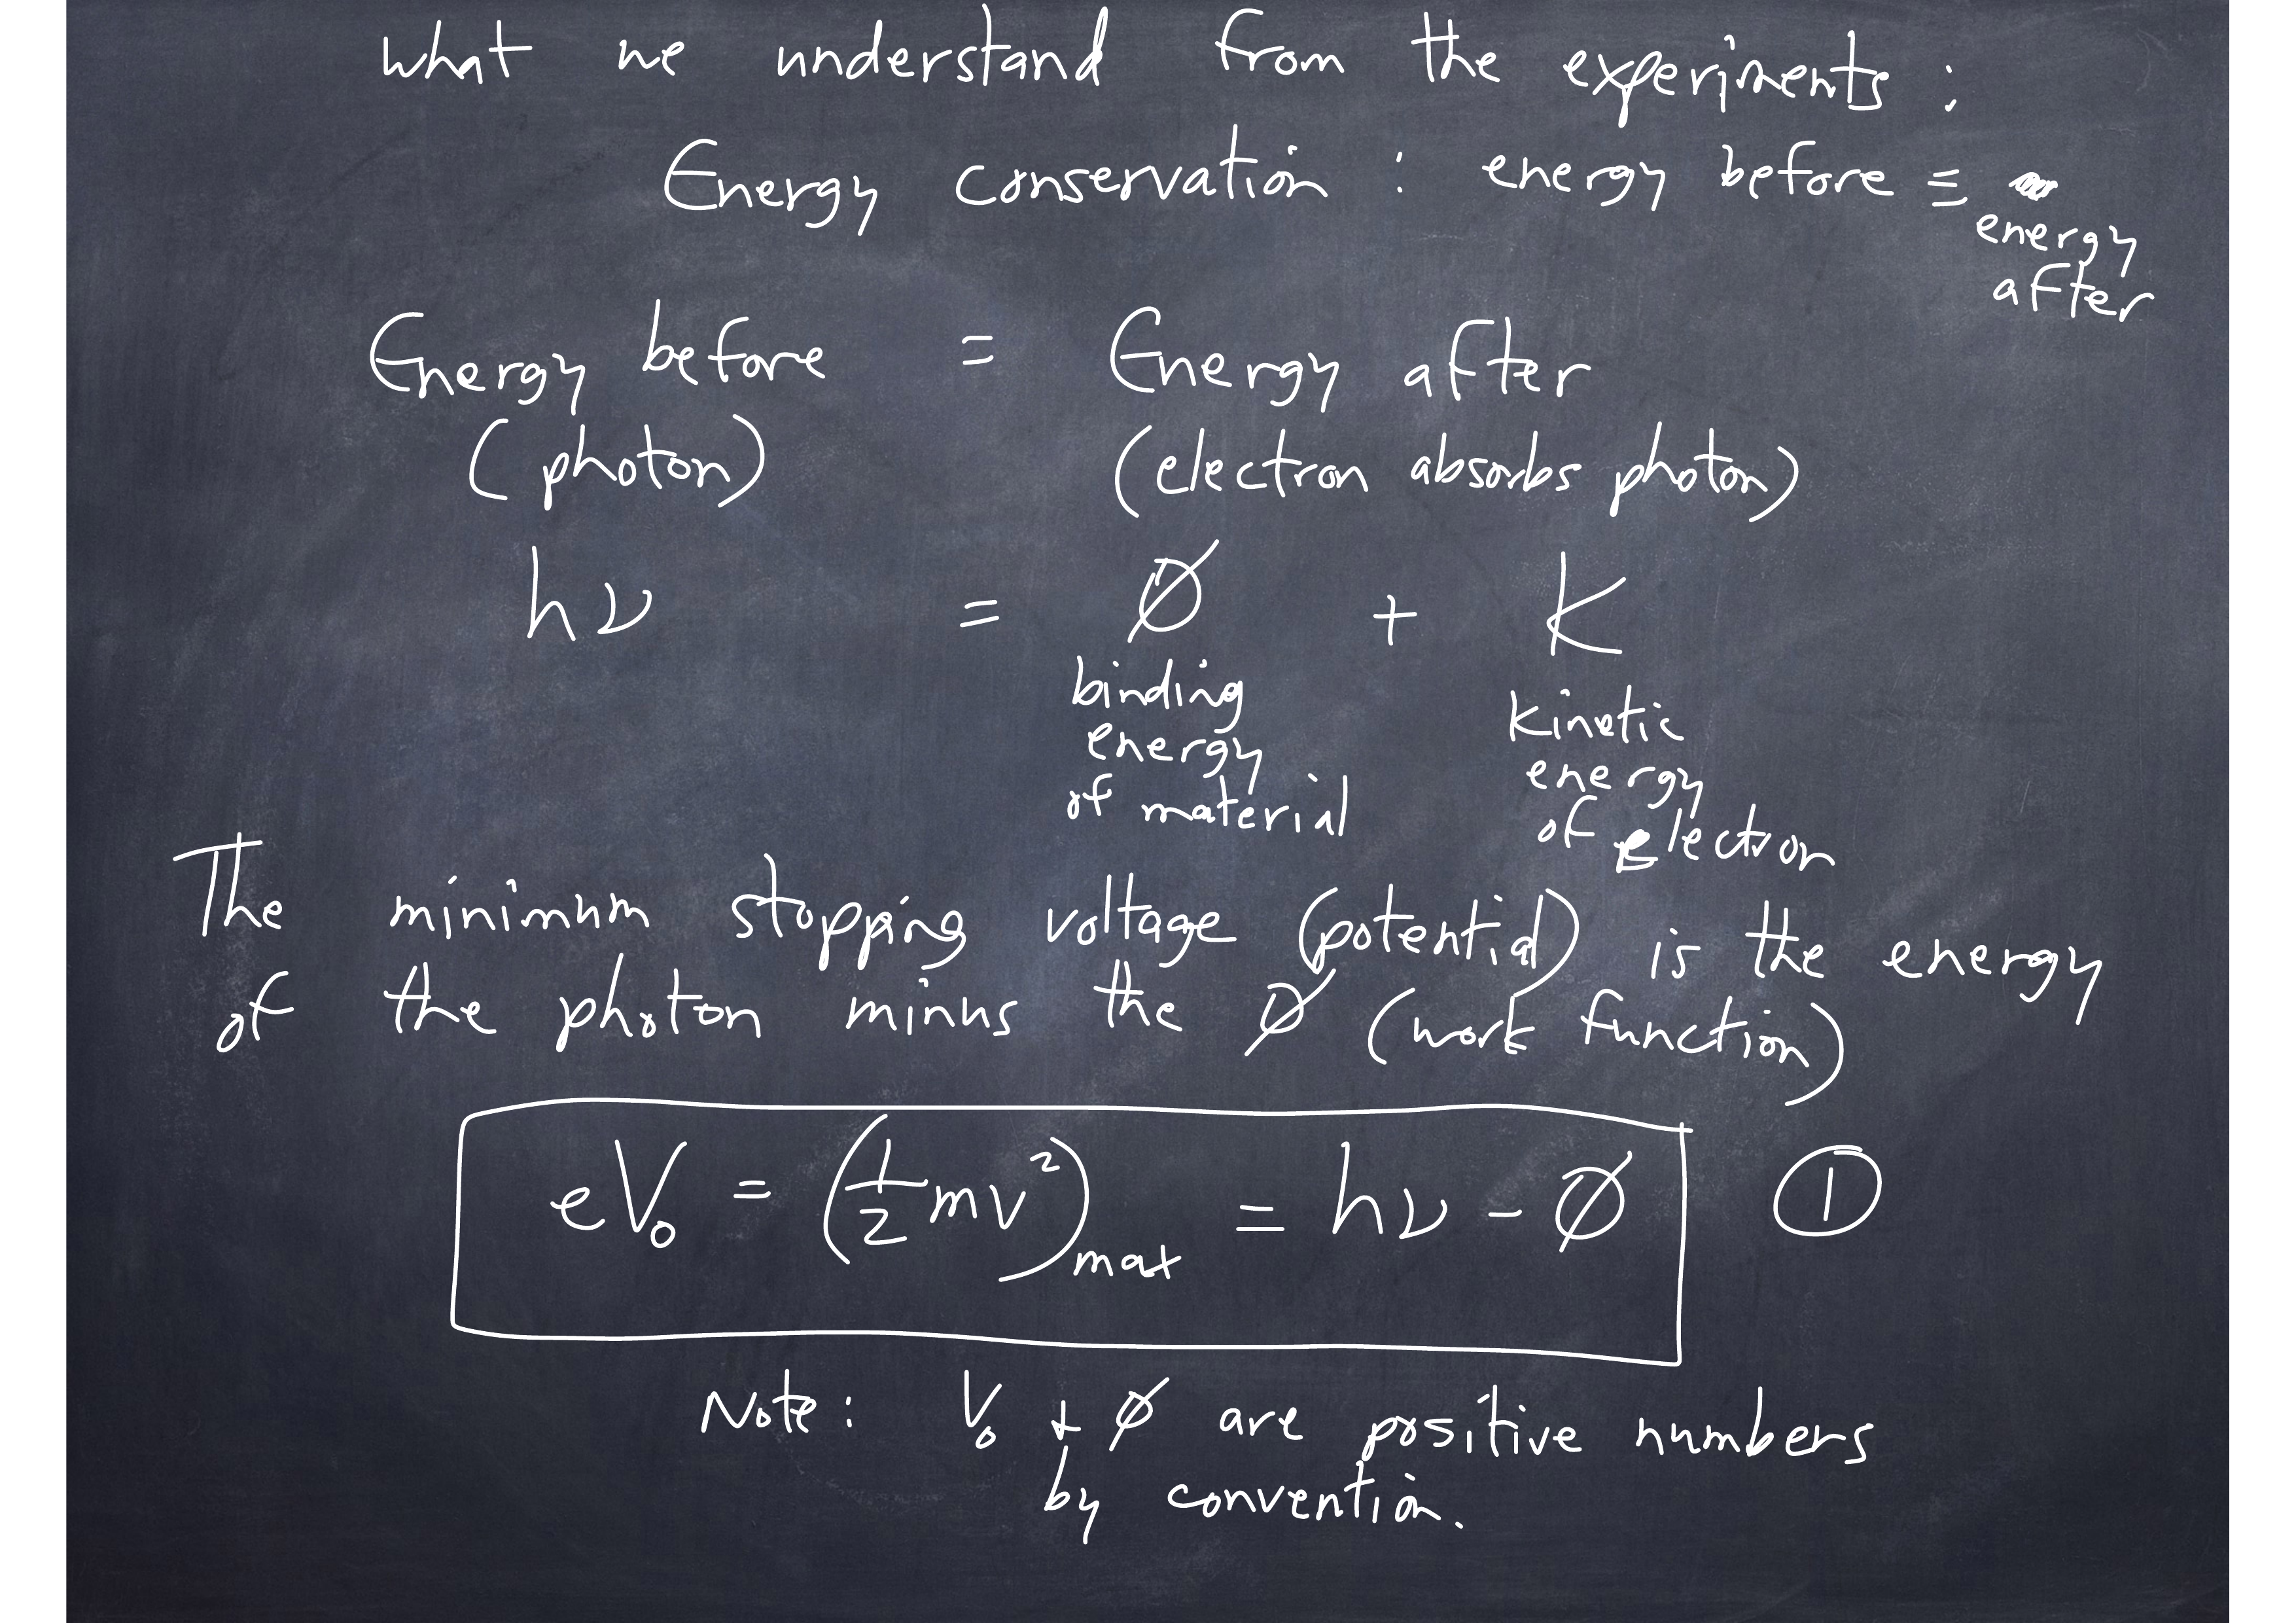 what we understand from the experiments :
Energy conservation : energy before =
energy
after
Energy before = Energy after
(photon) (electron absorbs photon)
hν = ϕ + K
binding
energy
of material
Kinetic
energy
of electron
The minimum stopping voltage (potential) is the energy
of the photon minus the ϕ (work function)
eV₀ = (1/2 mv²)max = hν - ϕ ①
Note: V₀ & ϕ are positive numbers
by convention.